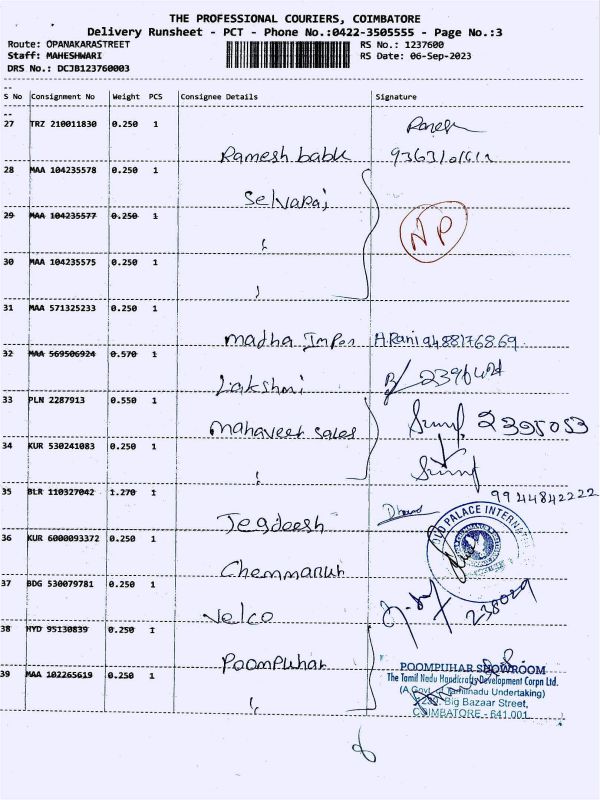 THE PROFESSIONAL COURIERS, COIMBATORE
Delivery Runsheet - PCT - Phone No.:0422-3505555 - Page No.:3
Route: OPANAKARASTREET RS No.: 1237600
Staff: MAHESHWARI RS Date: 06-Sep-2023
DRS No.: DCJB123760003
S No Consignment No Weight PCS Consignee Details Signature
27 TRZ 210011830 0.250 1
Ramesh babu
28 MAA 104235578 0.250 1
Selvaraj
29 MAA 104235577 0.250 1
NP
30 MAA 104235575 0.250 1
31 MAA 571325233 0.250 1
Madha Impex H.Rani 9488176869
32 MAA 569506924 0.570 1
Lakshmi
33 PLN 2287913 0.550 1
Mahaveer sales 2395053
34 KUR 530241083 0.250 1
35 BLR 110327042 1.270 1
9944842222
Jegdeesh
36 KUR 6000093372 0.250 1
PALACE INTERNATI
Chemmanur
37 BDG 530079781 0.250 1
Velco
38 HYD 95130839 0.250 1
Poompuhar
39 MAA 102265619 0.250 1
POOMPUHAR SHOWROOM
The Tamil Nadu Handicrafts Development Corpn Ltd.
(A Govt. of Tamilnadu Undertaking)
Big Bazaar Street,
COIMBATORE - 641 001.